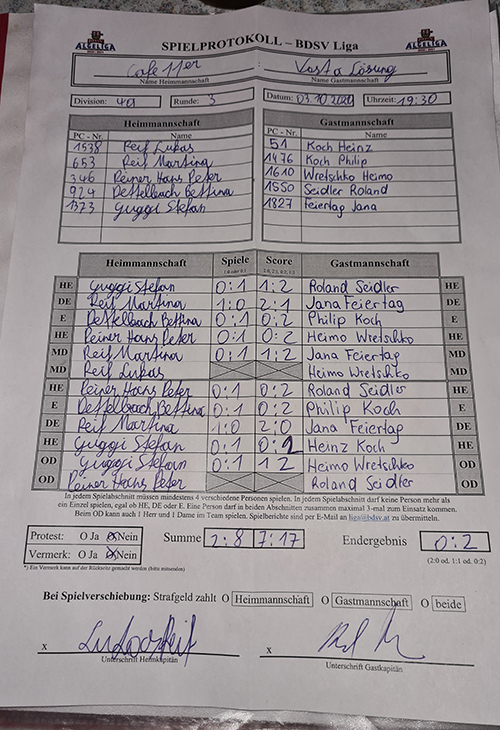 ALGELIGA SPIELPROTOKOLL – BDSV Liga ALGELIGA
Cafe 11er Vasta Lösung
Name Heimmannschaft Name Gastmannschaft
Division: 4a Runde: 3 Datum: 03.10.2020 Uhrzeit: 19:30
Heimmannschaft Gastmannschaft
PC - Nr. Name PC - Nr. Name
1538 Reif Lukas 51 Koch Heinz
653 Reif Martina 1476 Koch Philip
346 Peiner Hans Peter 1610 Wretschko Heimo
924 Dettelbach Bettina 1550 Seidler Roland
1373 Guggi Stefan 1827 Feiertag Jana
Heimmannschaft Spiele Score Gastmannschaft
1:0 oder 0:1 2:0, 2:1, 0:2, 1:2
HE Guggi Stefan 0:1 1:2 Roland Seidler HE
DE Reif Martina 1:0 2:1 Jana Feiertag DE
E Dettelbach Bettina 0:1 0:2 Philip Koch E
HE Peiner Hans Peter 0:1 0:2 Heimo Wretschko HE
MD Reif Martina 0:1 1:2 Jana Feiertag MD
MD Reif Lukas Heimo Wretschko MD
HE Peiner Hans Peter 0:1 0:2 Roland Seidler HE
E Dettelbach Bettina 0:1 0:2 Philip Koch E
DE Reif Martina 1:0 2:0 Jana Feiertag DE
HE Guggi Stefan 0:1 0:2 Heinz Koch HE
OD Guggi Stefan 0:1 1 2 Heimo Wretschko OD
OD Peiner Hans Peter Roland Seidler OD
In jedem Spielabschnitt müssen mindestens 4 verschiedene Personen spielen. In jedem Spielabschnitt darf keine Person mehr als
ein Einzel spielen, egal ob HE, DE oder E. Eine Person darf in beiden Abschnitten zusammen maximal 3-mal zum Einsatz kommen.
Beim OD kann auch 1 Herr und 1 Dame im Team spielen. Spielberichte sind per E-Mail an liga@bdsv.at zu übermitteln.
Protest: O Ja O Nein Summe 2:8 7:17 Endergebnis 0:2
Vermerk: O Ja O Nein (2:0 od. 1:1 od. 0:2)
*) Ein Vermerk kann auf der Rückseite gemacht werden (bitte mitsenden)
Bei Spielverschiebung: Strafgeld zahlt O Heimmannschaft O Gastmannschaft O beide
x x
Unterschrift Heimkapitän Unterschrift Gastkapitän